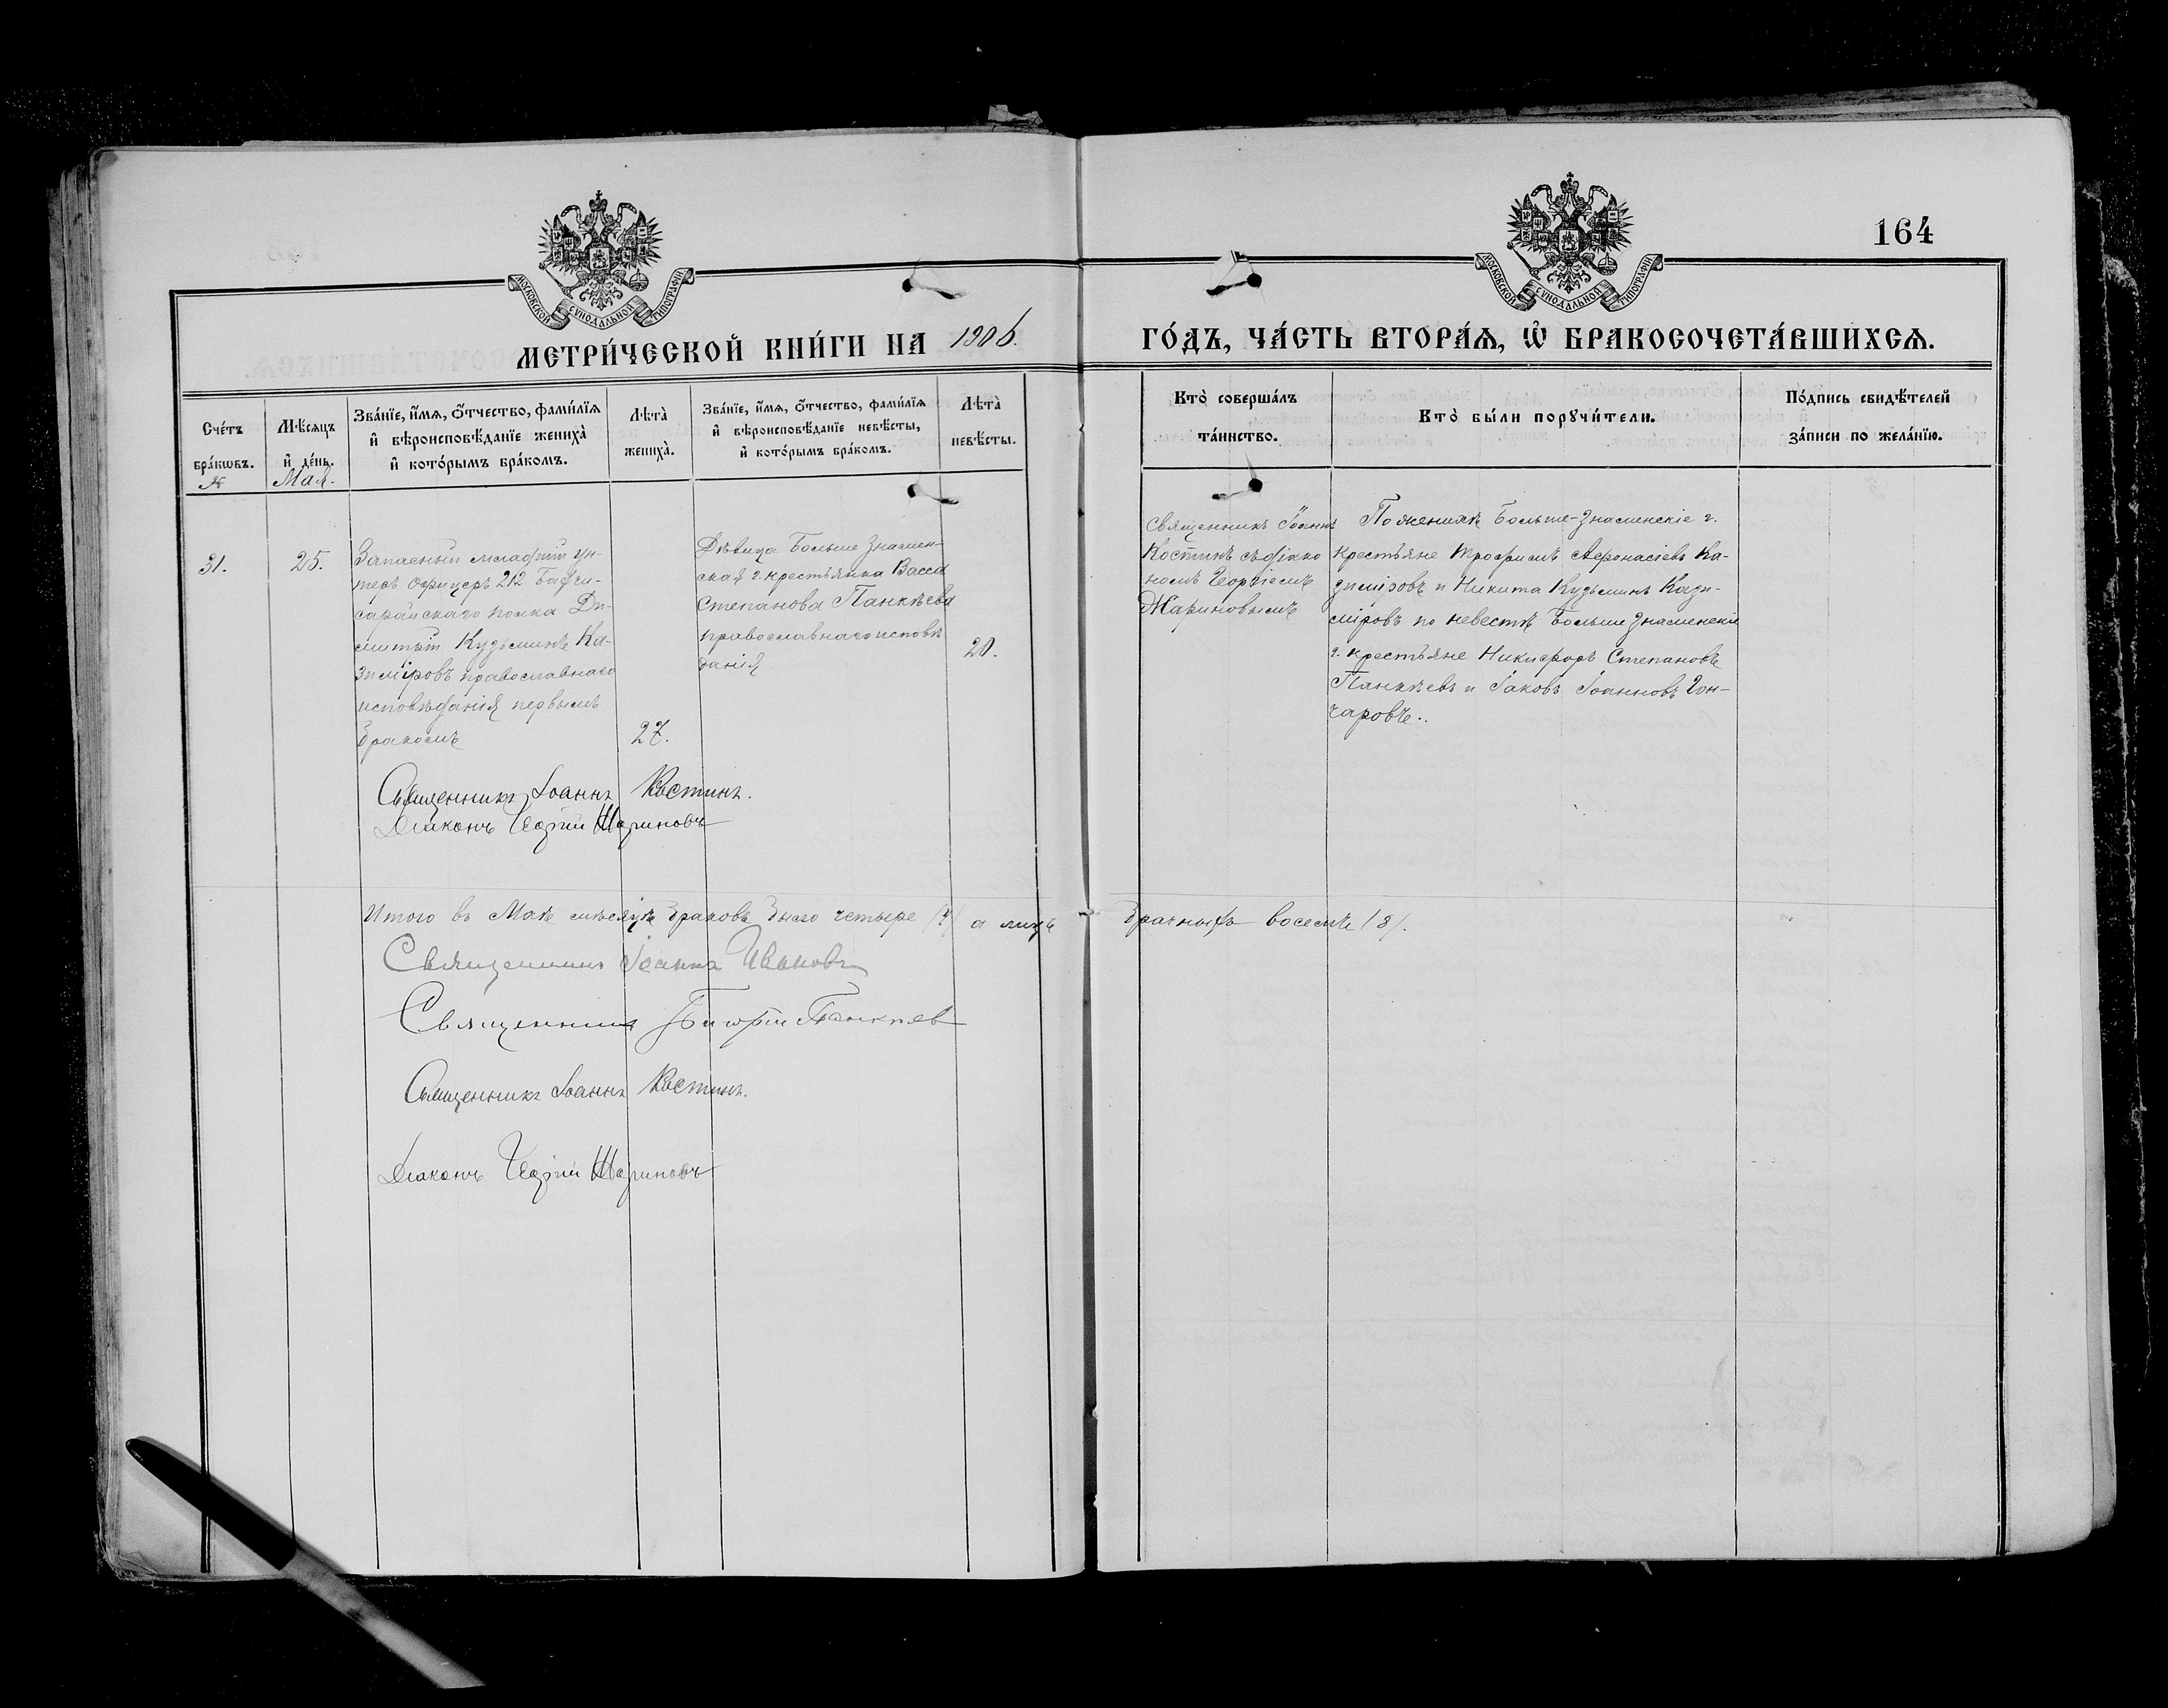 164
МОСКОВСКОЙ СУНОДАЛЬНОЙ ТИПОГРАФІИ
МОСКОВСКОЙ СУНОДАЛЬНОЙ ТИПОГРАФІИ
МЕТРИ́ЧЕСКОЙ КНИ́ГИ НА 1906.
ГО́ДЪ, ЧА́СТЬ ВТОРА́Ѧ, Ѽ БРАКОСОЧЕТА́ВШИХСѦ.
Сче́тъ
бра́кѡвъ.
№
Мѣ́сяцъ
и҆ де́нь.
Мая.
Зва́нїе, и҆́мѧ, ѻ҆́тчество, фами́лїѧ
и҆ вѣроисповѣ́данїе жениха̀
и҆ кото́рымъ бра́комъ.
Лѣта̀
жениха̀.
Зва́нїе, и҆́мѧ, ѻ҆́тчество, фами́лїѧ
и҆ вѣроисповѣ́данїе невѣ́сты,
и҆ кото́рымъ бра́комъ.
Лѣта̀
невѣ́сты.
Кто̀ соверша́лъ
та́инство.
Кто̀ бы́ли порꙋчи́тели.
По́дпись свидѣ́телей
за́писи по жела́нїю.
31.
25.
Запасный младшій ун-
теръ офицеръ 212 Бахчи-
сарайскаго полка Ди-
митрій Кузьминъ Ка-
зиміровъ православнаго
исповѣданія первымъ
бракомъ
27.
Дѣвица Больше Знамен-
ская г. крестьянка Васса
Степанова Панкѣева
православнаго исповѣ
данія
20.
Священникъ Іоаннъ
Костинъ съ діако
номъ Георгіемъ
Мариновымъ
По женихѣ Больше-Знаменскіе г.
крестьяне Трофимъ Афонасіевъ Ка-
зиміровъ и Никита Кузьминъ Кази-
міровъ по невестѣ Больше Знаменскіе
г. крестьяне Никифоръ Степановъ
Панкѣевъ и Іаковъ Іоанновъ Гон-
чаровъ.
Священникъ Іоаннъ Костинъ.
Діаконъ Георгій Мариновъ
Итого въ Маѣ мѣсяцѣ браковъ было четыре /4/ а лицъ брачныхъ восемь /8/.
Священникъ Іоаннъ Ивановъ
Священникъ Панкѣев
Священникъ Іоаннъ Костинъ.
Діаконъ Георгій Мариновъ